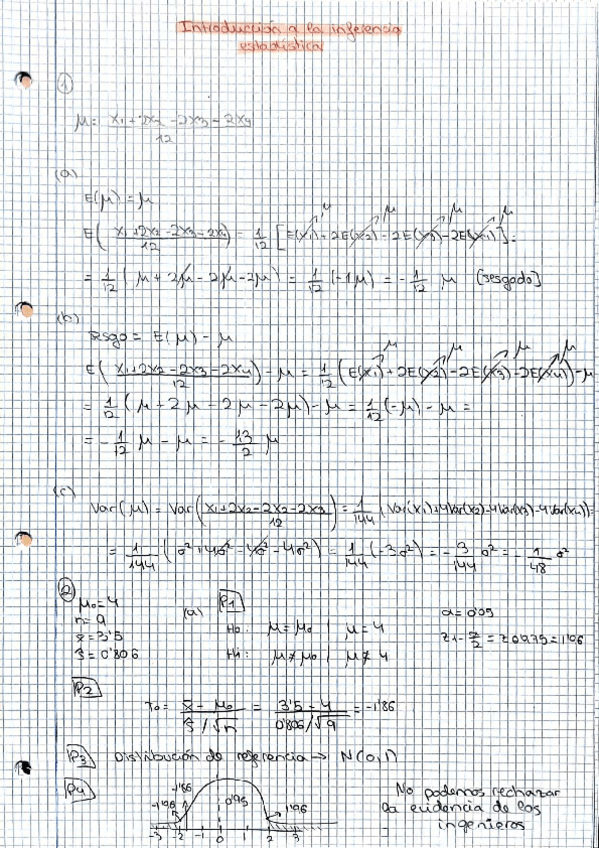 Introducción a la inferencia
estadística
①
μ = x1+2x2-2x3-2x4 / 12
(a)
E(μ) = μ
E( x1+2x2-2x3-2x4 / 12 ) = 1/12 [E(x1)+2E(x2)-2E(x3)-2E(x4)] =
= 1/12 (μ + 2μ - 2μ - 2μ) = 1/12 (-1μ) = - 1/12 μ (sesgado)
(b)
sesgo = E(μ) - μ
E( x1+2x2-2x3-2x4 / 12 ) - μ = 1/12 (E(x1)+2E(x2)-2E(x3)-2E(x4)) - μ
= 1/12 (μ + 2μ - 2μ - 2μ) - μ = 1/12 (-μ) - μ =
= - 1/12 μ - μ = - 13/2 μ
(c)
Var(μ) = Var( x1+2x2-2x2-2x3 / 12 ) = 1/144 (Var(x1)+4Var(x2)-4Var(x3)-4Var(x4)) =
= 1/144 (σ²+4σ²-4σ²-4σ²) = 1/144 (-3σ²) = - 3/144 σ² = - 1/48 σ²
②
μ0 = 4
n = 9
x̄ = 3'5
ŝ = 0'806
(a) P1
H0: μ = μ0 | μ = 4
H1: μ ≠ μ0 | μ ≠ 4
α = 0'05
z1-α/2 = z0'975 = 1'96
P2
T0 = x̄ - μ0 / ŝ/√n = 3'5 - 4 / 0'806/√9 = -1'86
P3 Distribución de referencia → N(0,1)
P4
-1'86
-1'96 0'95 1'96
-3 -2 -1 0 1 2 3
No podemos rechazar
la evidencia de los
ingenieros